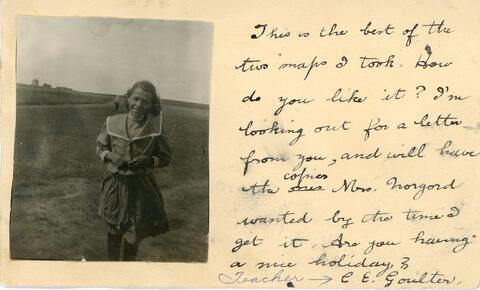 This is the best of the
two maps I took. How
do you like it? I'm
looking out for a letter
from you, and will have
copies
the ones Mrs. Norgord
wanted by the time I
get it. Are you having
a nice holiday?
Teacher → C. E. Goulter.